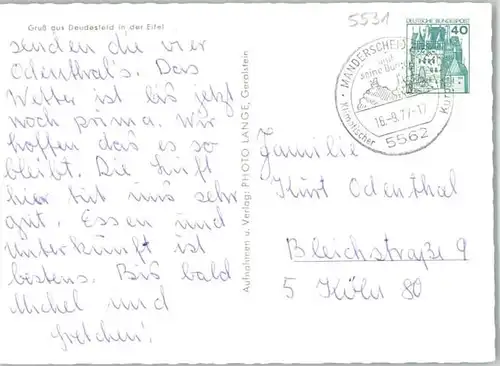 5531
Gruß aus Deudesfeld in der Eifel
senden die vier
Odenthal's. Das
Wetter ist bis jetzt
noch prima. Wir
hoffen das es so
bleibt. Die Luft
hier tut uns sehr
gut. Essen und
Unterkunft ist
bestens. Bis bald
Michel und
Gretchen!
Aufnahmen u. Verlag: PHOTO LANGE, Gerolstein
DEUTSCHE BUNDESPOST
40
MANDERSCHEID
und
seine Burgen
16.-9.77-17
Klimatischer Kur
5562
Familie
Kurt Odenthal
Bleichstraße 9
5 Köln 80